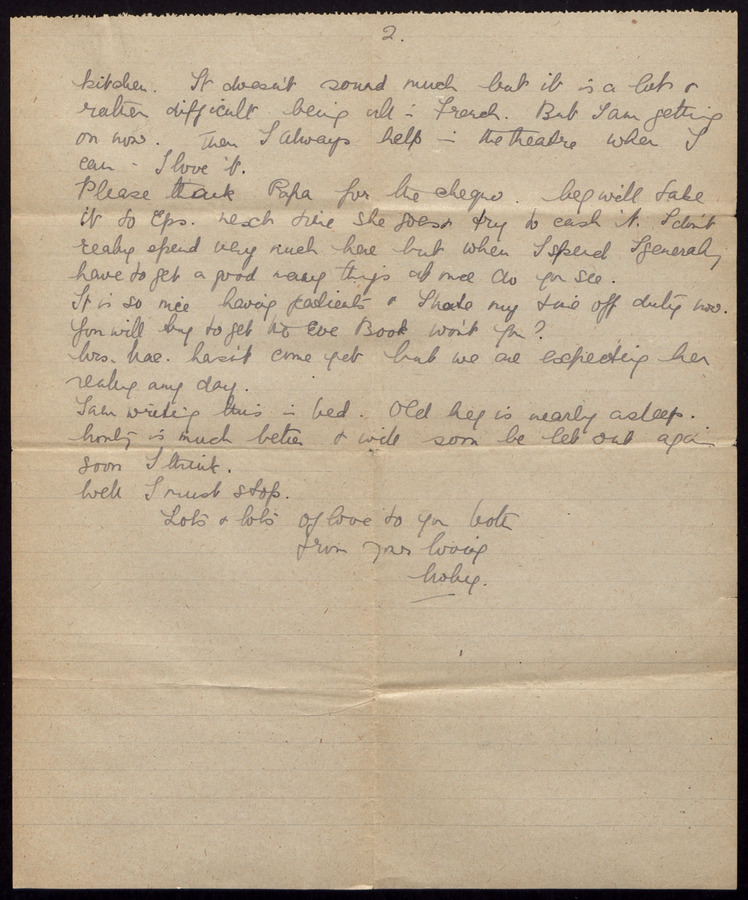 2.
kitchen. It doesn't sound much but it is a lot &
rather difficult being all in French. But I am getting
on now. Then I always help in the theatre when I
can - I love it.
Please thank Papa for the cheque. Meg will take
it to Eps. next time she goes & try to cash it. I don't
really spend very much here but when I spend I generally
have to get a good many things at once do you see.
It is so nice having patients & I hate my time off duty now.
You will try to get No Eve Book won't you?
Mrs. Mac. hasn't come yet but we are expecting her
really any day.
I am writing this in bed. Old Meg is nearly asleep.
is much better & will soon be let out again
soon I think.
Well I must stop.
Lots & lots of love to you both
from your loving